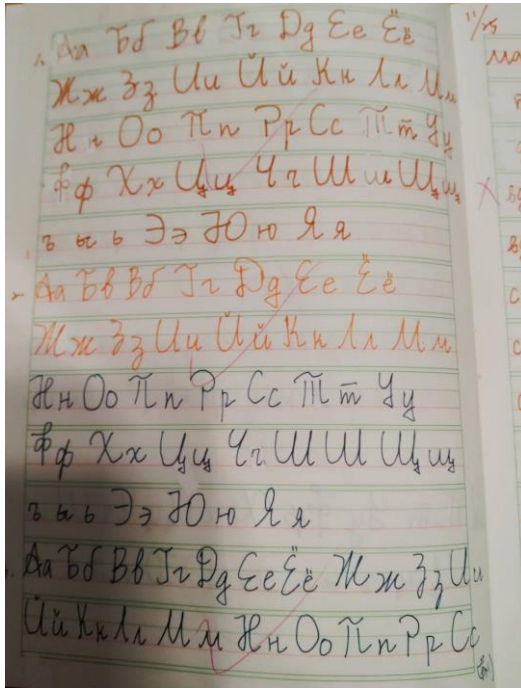 Аа Бб Вв Гг Дд Ее Ёё
Жж Зз Ии Йй Кк Лл Мм
Нн Оо Пп Рр Сс Тт Уу
Фф Хх Цц Чч Шш Щщ
ъ ы ь Ээ Юю Яя
Аа Бв Вб Гг Дд Ее Ёё
Жж Зз Ии Йй Кк Лл Мм
Нн Оо Пп Рр Сс Тт Уу
Фф Хх Цц Чч ШШ Щщ
ъ ы ь Ээ Юю Яя
Аа Бб Вв Гг Дд Ее Ёё Жж Зз Ии
Йй Кк Лл Мм Нн Оо Пп Рр Сс
11/25
ма